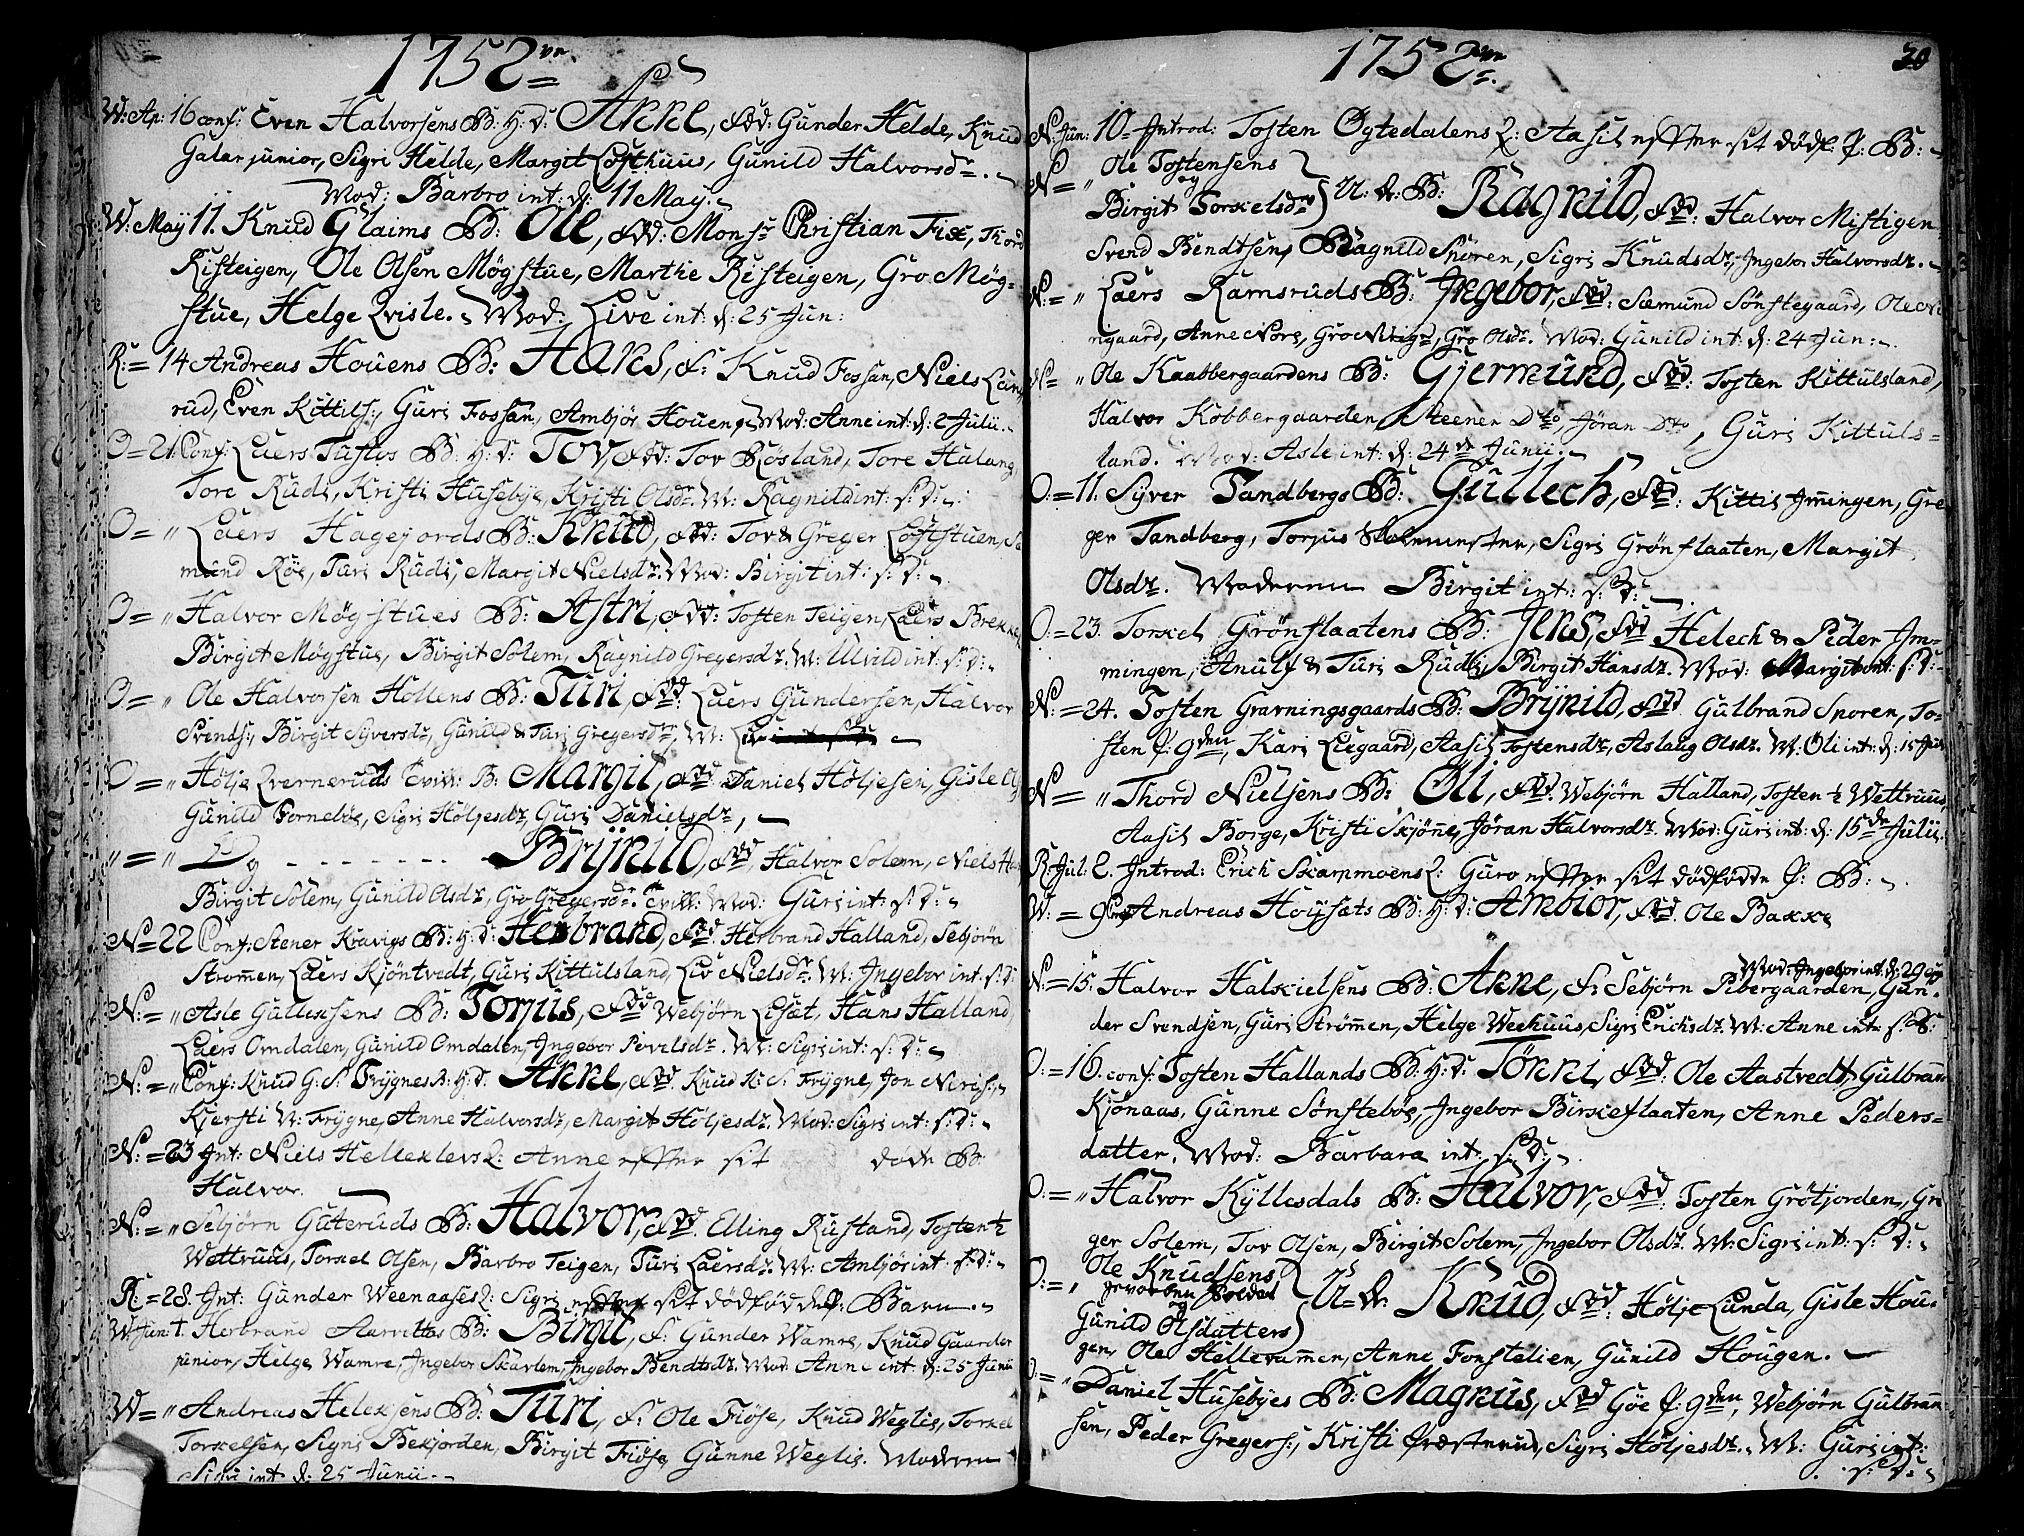 1752
W: Ap: 16 conf: Even Halvorsens B: H: D: Anne, Fdd: Gunder Helde, Knud
Galar junior, Sigri Helde, Margit Losthuus, Gunild Halvorsdr.
Mod: Barbro int: d: 11 May.
W: May 11. Knud Glaims B: Ole, Fdd: Monsr Christian Fixe, Thord
Risteigen, Ole Olsen Møgstue, Marthe Risteigen, Gro Møg-
stue, Helge Qvisle. Mod: Live int: d: 25 Jun:
R: = 14 Andreas Houens B: Hans, F: Knud Fossan, Niels Lund
rud, Even Kittils:, Guri Fossan, Ambjør Houen, Mod: Anne int: d: 2 Julii.
O = 21. Conf: Laers Tuftos B: H: D: Tov, Fdd: Tov Røsland, Tore Haland
Tore Rudi, Kristi Husebye, Kristi Olsdr. M: Ragnild int: s: D:
O = " Laers Hagejords B: Knud, Fdd: Tov & Greger Loftstuen, Sæ
mund Røe, Turi Rudi, Margit Nielsdr. Mod: Birgit int: s: D:
O = " Halvor Møgstues B: Astri, Fdd: Tosten Teigen, Laers Brekke,
Birgit Møgstue, Birgit Solem, Ragnild Gregersdr. M: Ulvild int: s: D:
O = " Ole Halvorsen Hollens B: Turi, Fdd: Laers Gundersen, Halvor
Svends:, Birgit Syversdr, Gunild & Turi Gregersdr, M: Liv
O = " Hølje Qverneruds Tvill: B: Margit, Fdd: Daniel Høljesen, Gisle
Gunild Fornebøe, Sigri Høljesdr, Guri Danielsdr,
" = " Og - - - - - - - - Brynild, Fdd: Halvor Solem, Niels
Birgit Solem, Gunild Olsdr, Gro Gregersdr. Tvill: Mod: Guri int: s: D:
N = 22 Conf: Stener Kravigs B: H: D: Herbrand, Fdd: Herbrand Halland, Sebjørn
Strømen, Laers Kjøntvedt, Guri Kittulsland, Liv Nielsdr. M: Ingebor int: s: D:
N: = " Asle Gullexsens B: Torjus, Fdd: Webjørn Liset, Hans Halland,
Laers Omdalen, Gunild Omdalen, Ingebor Povelsdr. M: Sigri int: s: D:
N: = " Conf: Knud G: S: Frygnes B: H: D: Anne, Fdd: Knud K: S: Frygne, Jon Niris:
Kjersti N: Frygne, Anne Halvorsdr, Margit Høljesdr. Mod: Sigri int: s: D:
N: = 23 Int: Niels Hellexlevs Q: Anne efter sit døde B:
Halvor.
N: = " Sebjørn Guteruds B: Halvor, Fdd: Elling Rustand, Tosten ½
Wettruus, Torkel Olsen, Barbro Teigen, Turi Laersdr. M: Ambjør int: s: D:
R: = 28. Int: Gunder Weenaases Q: Sigri efter sit dødfødde P: Barn.
W: Jun: 1. Herbrand Aarvettas B: Birgit, F: Gunder Wamre, Knud Gaarder
junior, Helge Wamre, Ingebor Skarlem, Ingebor Bendtsdr. Mod: Anne int: d: 25 Junii
W = " Andreas Helexsens B: Turi, F: Ole Fiøse, Knud Weglie, Torkel
Torkelsen, Sigri Bekjorden, Birgit Fiøse, Gunne Weglie. Moderen
Sigri int: d: 25 Junii.
1752
30
N: Jun: 10 = Introd: Tosten Øgtedalens Q: Aasil efter sit dødf: P: B:
N = " Ole Tostensens
og
Birgit Torkelsdrs U: E: B: Ragnild, Fdd: Halvor Mistigen
Svend Bendtsen, Ragnild Snøren, Sigri Knudsdr, Ingebor Halvorsdr.
N: = " Laers Ramsruds B: Ingebor, Fdd: Sæmund Sønstegaard, Ole
rigaard, Anne Nore, Gro, Gro Olsdr. Mod: Gunild int: d: 24 Jun:
N = " Ole Kaabbergaardens B: Gjermund, Fdd: Tosten Kittulsland,
Halvor Kobbergaarden, Steener Dto, Jøran Dto, Guri Kittuls-
land. Mod: Asle int: d: 24de Junii.
O: = 11. Syver Tandbergs B: Gullech, Fdd: Kittil Immingen, Gre
ger Tandberg, Torjus Skolemester, Sigri Grønflaaten, Margit
Olsdr. Moderen Birgit int: s: D:
O: = 23. Torkel Grønflaatens B: Jens, Fdd: Helech & Peder Im-
mingen, Anulf & Turi Rudi, Birgit Hansdr. Mod: Margit int: s: D:
N: = 24. Tosten Gravningsgaards B: Brynild, Fdd: Gulbrand Sporen, To-
sten P: gden, Kari Liegaard, Aasil Tostensdr, Aslaug Olsdr. M: Oli int: d: 15 Julii
N = " Thord Nielsens B: Oli, Fdd: Webjørn Halland, Tosten ½ Wettruus
Aasil Borge, Kristi Skjønne, Jøran Halvorsdr. Mod: Guri int: d: 15de Julii.
R: Jul: 2. Introd: Erich Skarpmoens Q: Guro efter sit dødfødde P: B:
W: = 9 Conf: Andreas Høysets B: H: D: Ambior, Fdd: Ole Bakke
Mod: Ingebor int: d: 29
N: = 15. Halvor Halskielsens B: Anne, F: Sebjørn Pibergaarden, Gun-
der Svendsen, Guri Strømen, Helge Weehuus, Sigri Erichsdr. M: Anne int: s: D:
O: = 16. conf: Tosten Hallands B: H: D: Tønni, Fdd: Ole Aastvedt, Gulbran
Kjønaas, Gunne Sønstebøe, Ingebor Birkeflaaten, Anne Peders-
datter. Mod: Barbara int: s: D:
O: = " Halvor Kyllesdals B: Halvor, Fdd: Tosten Grøtjorden, Gre
ger Solem, Tov Olsen, Birgit Solem, Ingebor Olsdr. M: Sigri int: s: D:
O: = " Ole Knudsens
gevorben Soldat
og
Gunild Olsdatters U: E: Knud, Fdd: Hølje Lunda, Gisle Hou-
gen, Ole Hellerammen, Anne Fonstelien, Gunild Hougen.
O: = " Daniel Husebyes B: Magnus, Fdd: Goe P: gden, Webjørn Gulbran
sen, Peder Gregers:, Kristi Præsterud, Sigri Høljesdr. M: Guri int:
s: D: